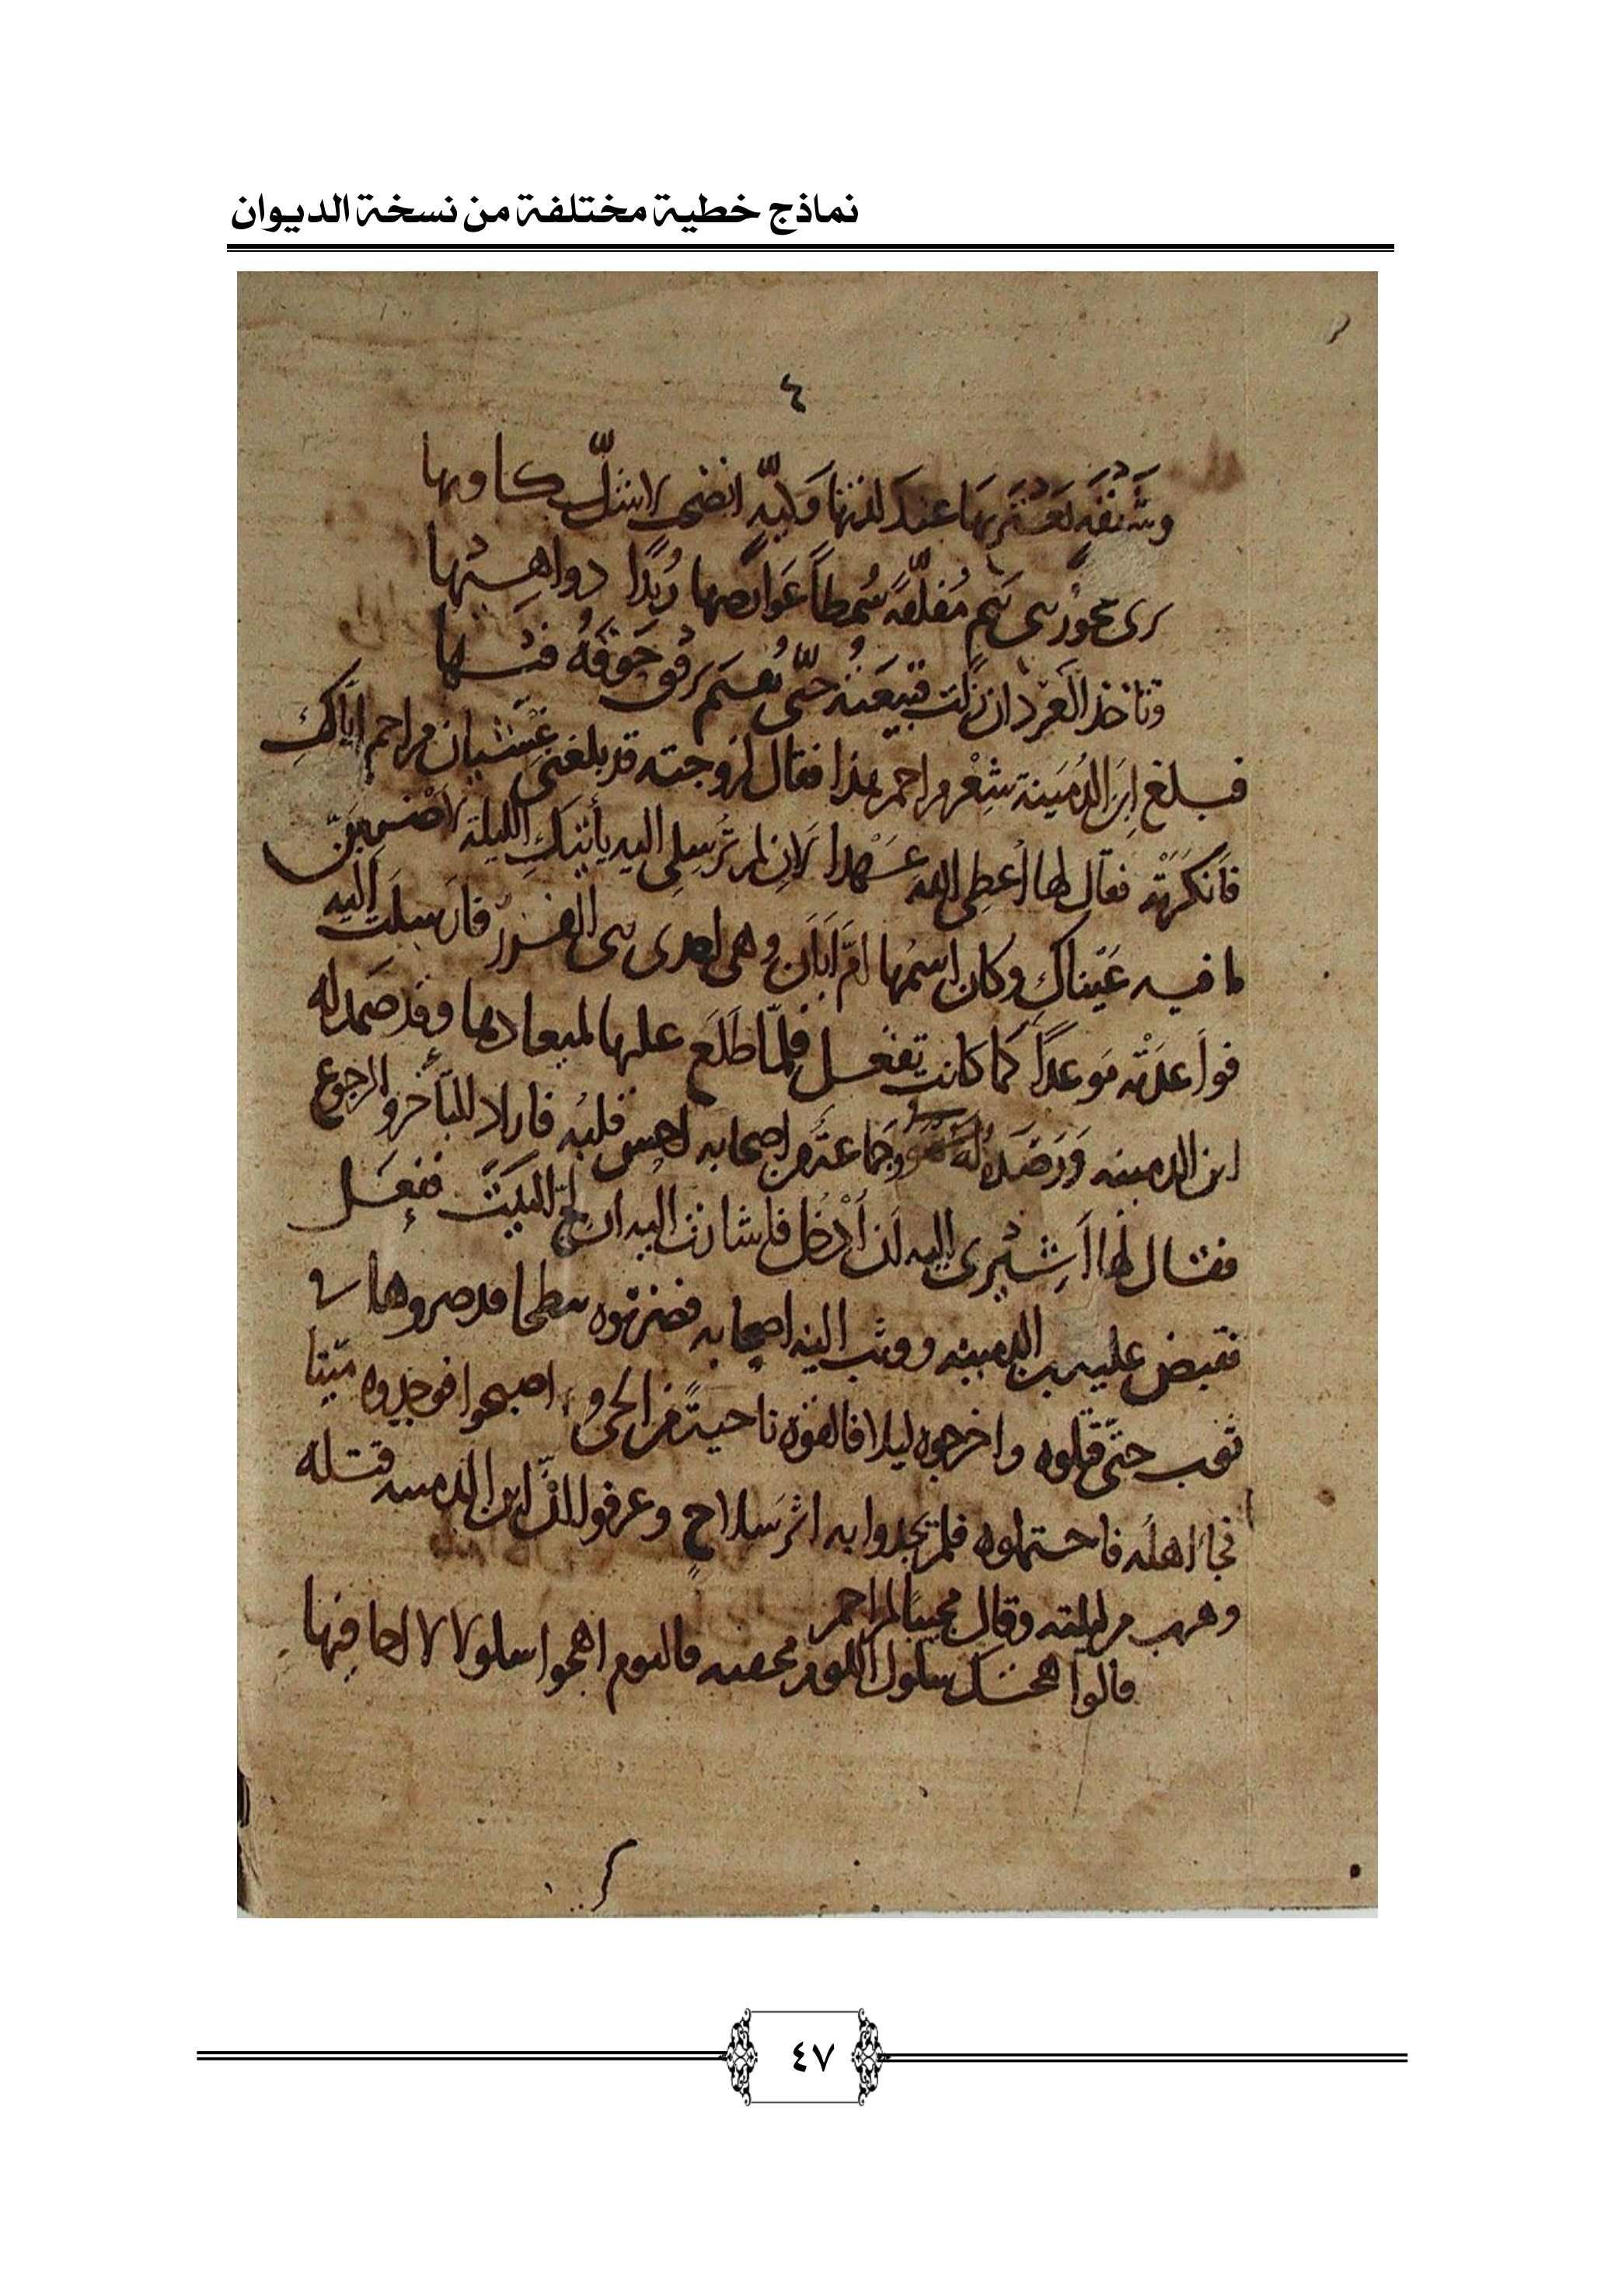 نماذج خطية مختلفة من نسخة الديوان
٤
وشهقة عند لذتها انضجى لا شلّ كاويها
ترى عجوز بنى تيم
وتاخذ العرد ان زلت فتيعته حتّى يقيم برفق
فبلغ ابن الدُمَينة شِعْر مزاحم هذا فقال لزوجته قد بلغنى غشيان مزاحم ايّاكِ
فانكرته فقال لها أُعطِى الله عهدا لاِن لم تُرسِلى اليه يأتيكِ الليلة لأضربنّ
ما فيه عَيْناكِ وكان اسمها امّ اَبَان وهى احدى بنى فارسلت اليه
فواعدَتْه مَوعدًا كما كانت تفعل فلمّا طَلَع عليها لميعادها وقد صمد له
ابن الدمينه وَرَصَد لَهُ وجماعةٌ من اصحابه احس قلبُه فاراد التأخر والرجوع
فقال لها اَشِيْرى اليه لَن اَدْخُل فاشارت اليه ان لج البَيْتَ ففعَل
فقبض عليه بن الدمينه ووثب اليه اصحابه فضربوه قد صروها فى
ثوب حتّى قتلوه واخرجوه ليلا فالقوه ناحيةً من الحى و اصبحوا فوجدوه ميّتا
فجاَ اهله فاحتملوه فلم يجدوا به اثر سَلاحٍ وعرفوا انّ ابن الدمينه قتله
وهرب من ليلته وقال مجيبا لمزاحم
قالوا هجتك سلول اللوم مخفيه فاليوم اهجوا سلولا لا اخافيها
٤٧